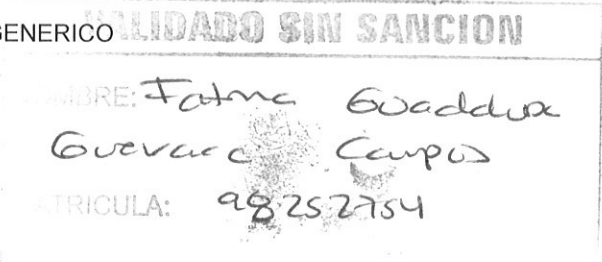 GENERICO VALIDADO SIN SANCION
NOMBRE: Fatima Guadalupe
Guevara Campos
MATRICULA: 98252754